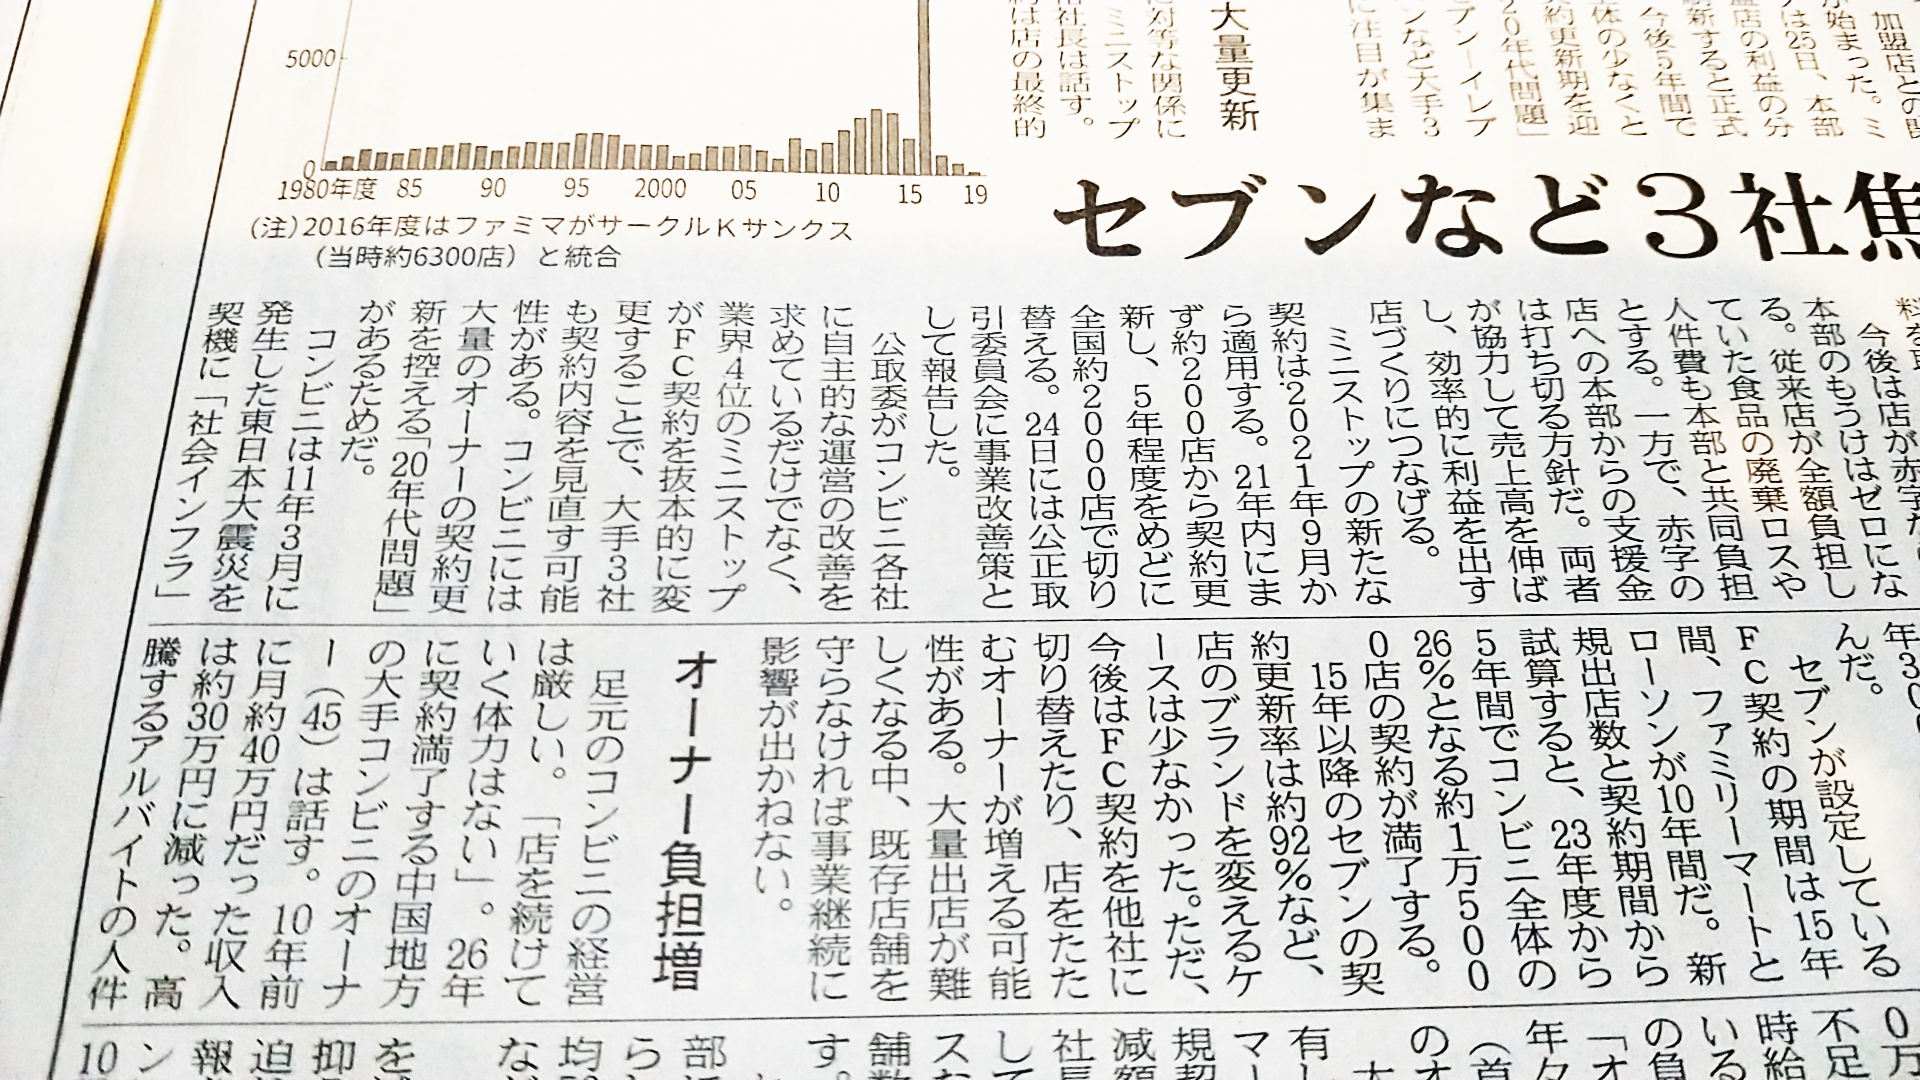 加盟店との関
が始まった。ミ
は25日、本部
盟店の利益の分
刷新すると正式
今後5年間で
体の少なくと
約更新期を迎
20年代問題」
ブン―イレブ
ンなど大手3
に注目が集ま
大量更新
に対等な関係に
ミニストップ
社長は話す。
約は店の最終的
5000
0
1980年度 85 90 95 2000 05 10 15 19
(注)2016年度はファミマがサークルKサンクス
(当時約6300店)と統合
セブンなど3社焦
今後は店が赤字な
本部のもうけはゼロにな
る。従来店が全額負担し
ていた食品の廃棄ロスや
人件費も本部と共同負担
とする。一方で、赤字の
店への本部からの支援金
は打ち切る方針だ。両者
が協力して売上高を伸ば
し、効率的に利益を出す
店づくりにつなげる。
ミニストップの新たな
契約は2021年9月か
ら適用する。21年内にま
ず約200店から契約更
新し、5年程度をめどに
全国約2000店で切り
替える。24日には公正取
引委員会に事業改善策と
して報告した。
公取委がコンビニ各社
に自主的な運営の改善を
求めているだけでなく、
業界4位のミニストップ
がFC契約を抜本的に変
更することで、大手3社
も契約内容を見直す可能
性がある。コンビニには
大量のオーナーの契約更
新を控える「20年代問題」
があるためだ。
コンビニは11年3月に
発生した東日本大震災を
契機に「社会インフラ」
んだ。
セブンが設定している
FC契約の期間は15年
間、ファミリーマートと
ローソンが10年間だ。新
規出店数と契約期間から
試算すると、23年度から
5年間でコンビニ全体の
26%となる約1万500
0店の契約が満了する。
15年以降のセブンの契
約更新率は約92%など、
店のブランドを変えるケ
ースは少なかった。ただ、
今後はFC契約を他社に
切り替えたり、店をたた
むオーナーが増える可能
性がある。大量出店が難
しくなる中、既存店舗を
守らなければ事業継続に
影響が出かねない。
オーナー負担増
足元のコンビニの経営
は厳しい。「店を続けて
いく体力はない」。26年
に契約満了する中国地方
の大手コンビニのオーナ
ー(45)は話す。10年前
に月約40万円だった収入
は約30万円に減った。高
騰するアルバイトの人件
0万
不足
時給
いる
の負
「オ
(首
年夕
のオ
大
有し
マー
規契
減額
社長
して
スな
舗数
す。
部
ら
均
な
を
抑
迫
報
ン
10